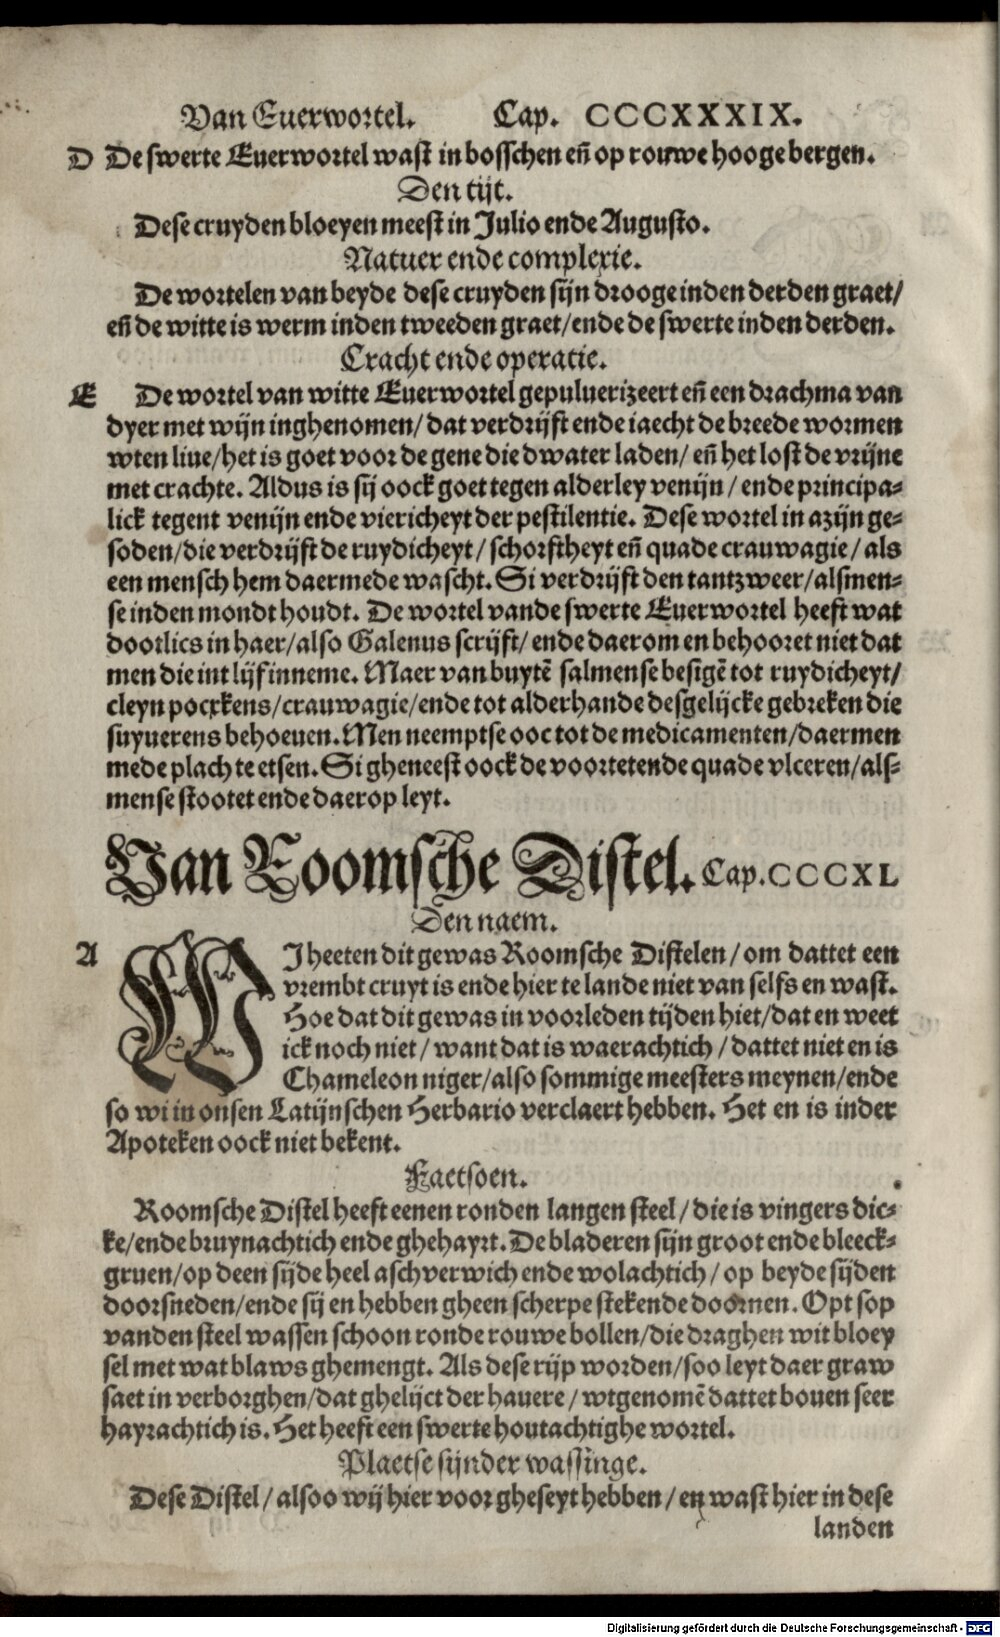 Van Euerwortel. Cap. CCCXXXIX.
D De swerte Euerwortel wast in bosschen en̄ op rouwe hooge bergen.
Den tijt.
Dese cruyden bloeyen meest in Julio ende Augusto.
Natuer ende complexie.
De wortelen van beyde dese cruyden sijn drooge inden derden graet/
en̄ de witte is werm inden tweeden graet/ende de swerte inden derden.
Cracht ende operatie.
E De wortel van witte Euerwortel gepuluerizeert en̄ een drachma van
dyer met wijn inghenomen/ dat verdrijft ende iaecht de breede wormen
wten liue/het is goet voor de gene die dwater laden/ en̄ het lost de vrijne
met crachte. Aldus is sij oock goet tegen alderley venijn / ende principa-
lick tegent venijn ende viericheyt der pestilentie. Dese wortel in azijn ge-
soden/die verdrijft de ruydicheyt / schorftheyt en̄ quade crauwagie / als
een mensch hem daermede wascht. Si verdrijft den tantzweer/alsmen-
se inden mondt houdt. De wortel vande swerte Euerwortel heeft wat
dootlics in haer/also Galenus scrijft/ende daerom en behooret niet dat
men die int lijf inneme. Maer van buytē salmense besigē tot ruydicheyt/
cleyn pocxkens/crauwagie/ende tot alderhande desgelijcke gebreken die
suyuerens behoeuen. Men neemptse ooc tot de medicamenten/daermen
mede plach te etsen. Si gheneest oock de voortetende quade vlceren/als-
mense stootet ende daerop leyt.
Van Roomsche Distel. Cap. CCCXL
Den naem.
A WIheeten dit gewas Roomsche Distelen / om dattet een
vrembt cruyt is ende hier te lande niet van selfs en wast.
Hoe dat dit gewas in voorleden tijden hiet/dat en weet
ick noch niet / want dat is waerachtich / dattet niet en is
Chameleon niger/also sommige meesters meynen/ende
so wi in onsen Latijnschen Herbario verclaert hebben. Het en is inder
Apoteken oock niet bekent.
Faetsoen.
Roomsche Distel heeft eenen ronden langen steel / die is vingers dic-
ke/ende bruynachtich ende ghehayrt. De bladeren sijn groot ende bleeck-
gruen/op deen sijde heel aschverwich ende wolachtich / op beyde sijden
doorsneden/ende sij en hebben gheen scherpe stekende doornen. Opt sop
vanden steel wassen schoon ronde rouwe bollen/die draghen wit bloey
sel met wat blaws ghemengt. Als dese rijp worden/soo leyt daer graw
saet in verborghen/dat ghelijct der hauere / wtgenomē dattet bouen seer
hayrachtich is. Het heeft een swerte houtachtighe wortel.
Plaetse sijnder wassinge.
Dese Distel / alsoo wij hier voor gheseyt hebben / en wast hier in dese
landen
Digitalisierung gefördert durch die Deutsche Forschungsgemeinschaft - DFG